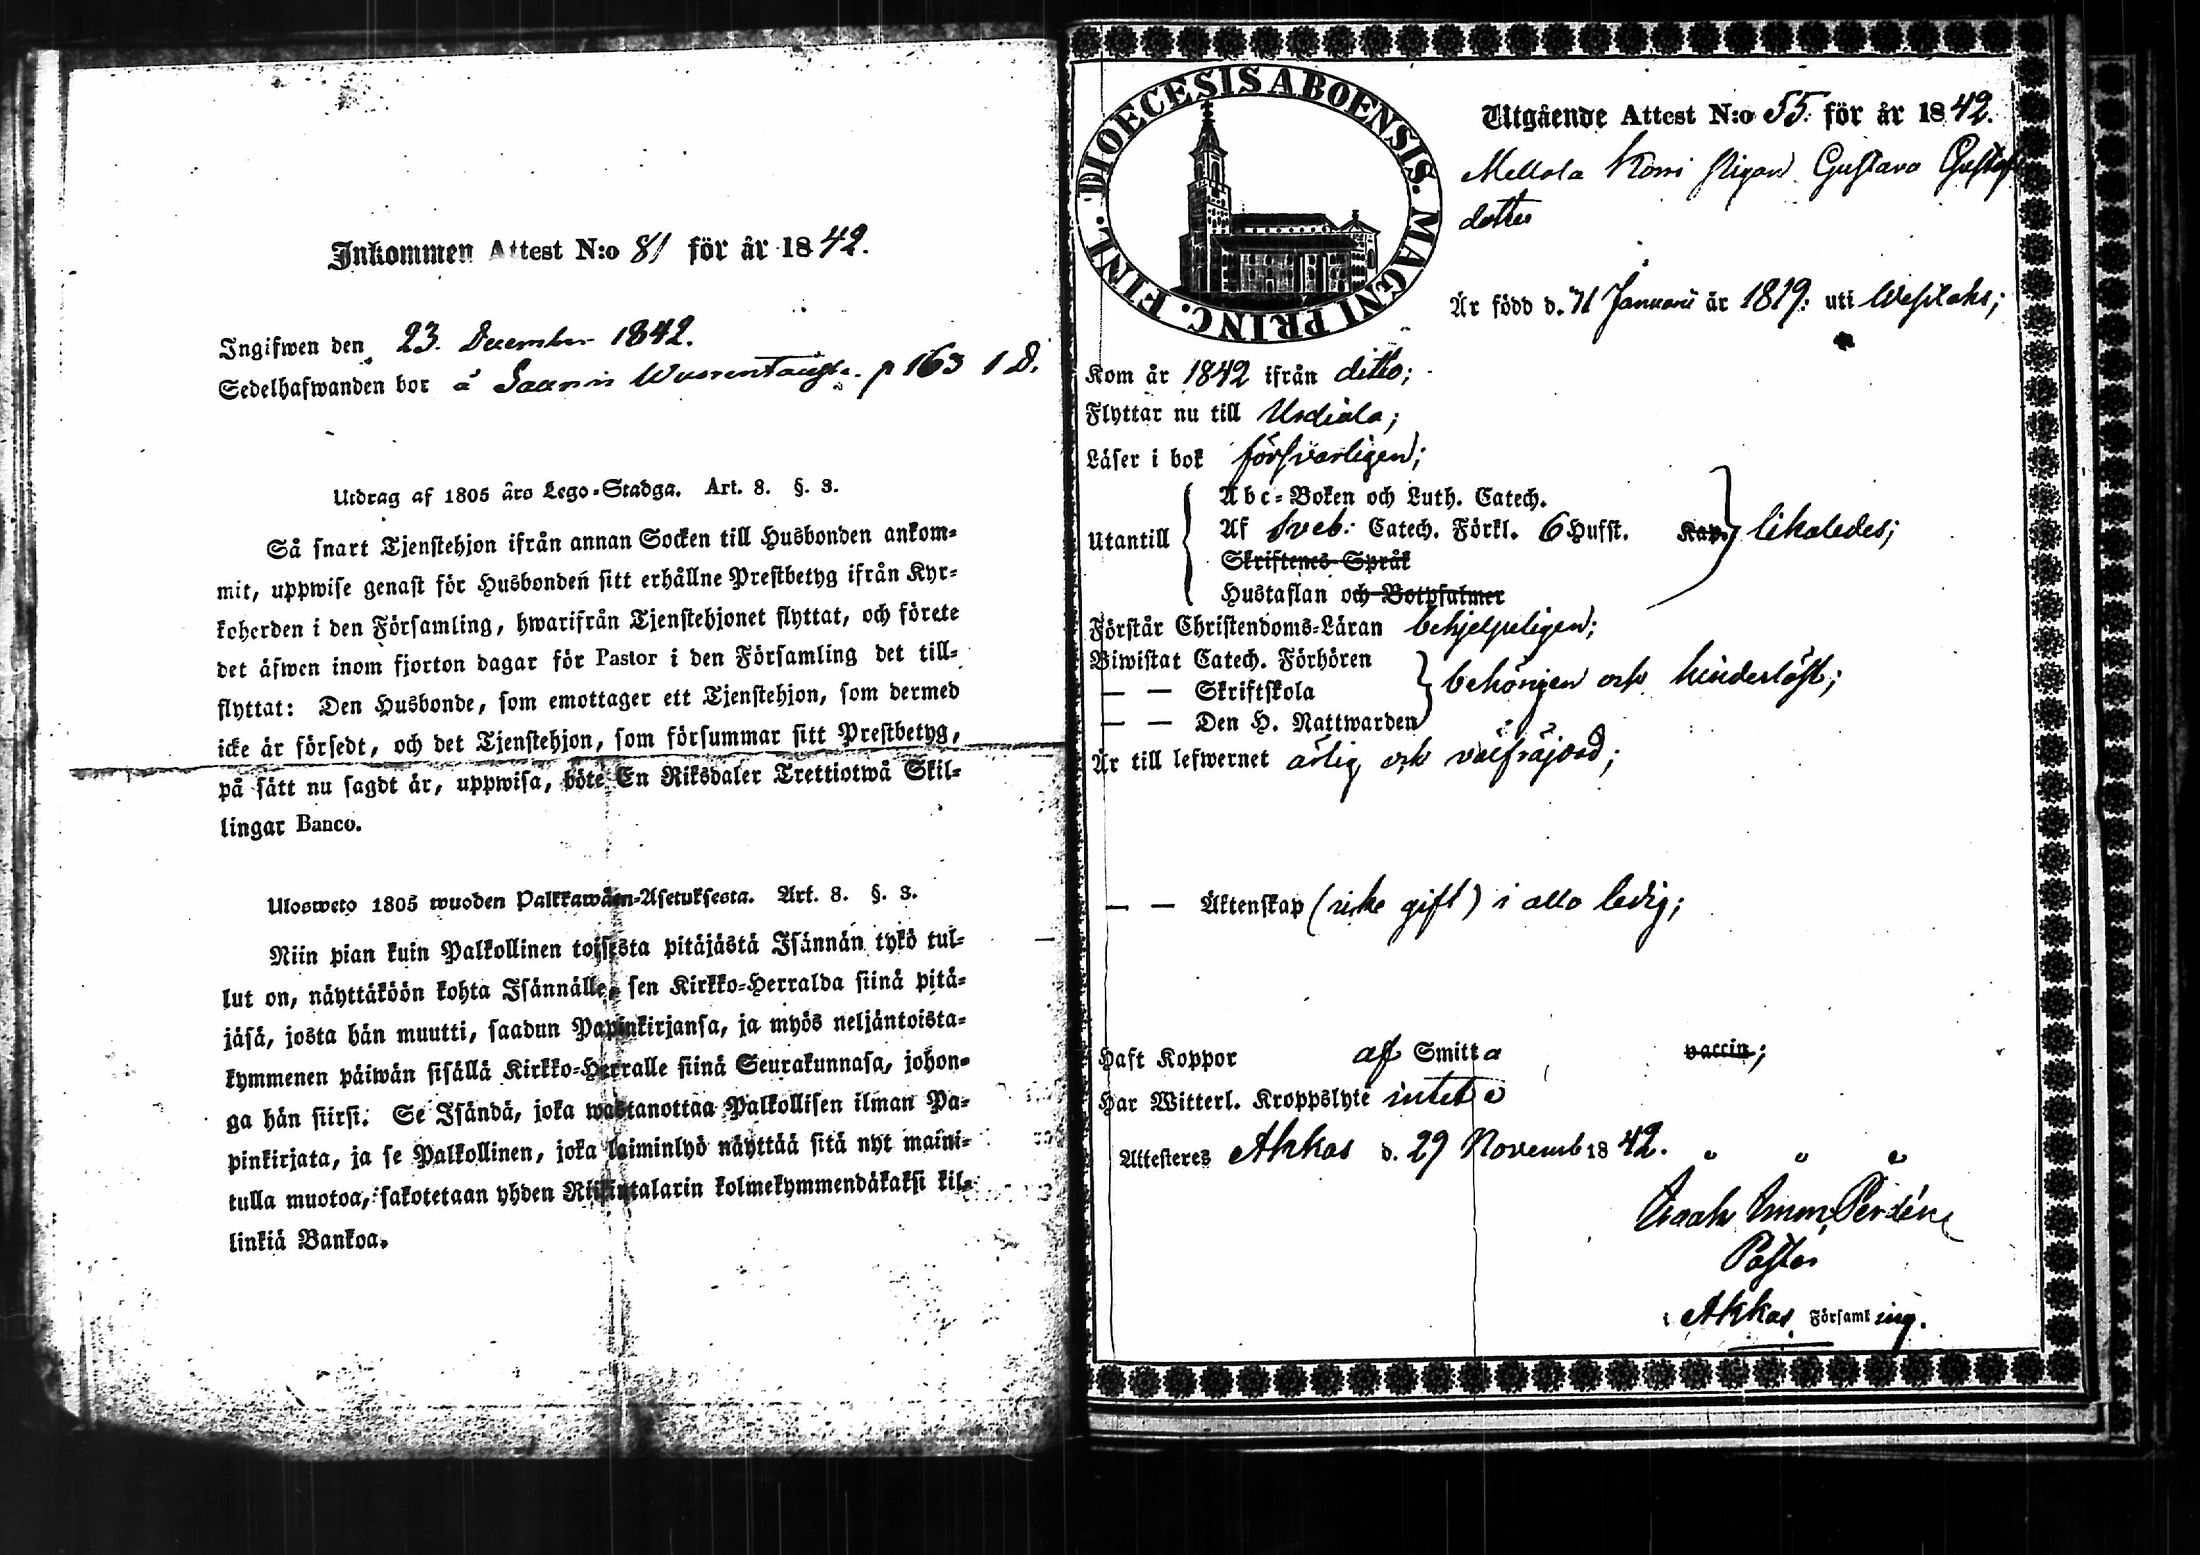 Inkommen Attest N:o 81 för år 1842.
Ingifwen den 23. December 1842.
Sedelhafwanden bor å p 163 1 D.
Utdrag af 1805 års Lego-Stadga. Art. 8. §. 3.
Så snart Tjenstehjon ifrån annan Socken till Husbonden ankom-
mit, uppwise genast för Husbonden sitt erhållne Prestbetyg ifrån Kyr-
koherden i den Församling, hwarifrån Tjenstehjonet flyttat, och förete
det äfwen inom fjorton dagar för Pastor i den Församling det till-
flyttat: Den Husbonde, som emottager ett Tjenstehjon, som dermed
icke är försedt, och det Tjenstehjon, som försummar sitt Prestbetyg,
på sätt nu sagdt är, uppwisa, böte En Riksdaler Trettiotwå Skil-
lingar Banco.
Ulosweto 1805 wuoden Palkkawäen-Asetuksesta. Art. 8. §. 3.
Niin pian kuin Palkollinen toisesta pitäjästä Isännän tykö tul-
lut on, näyttäköön kohta Isännälle, sen Kirkko-Herralda siinä pitä-
jäsä, josta hän muutti, saadun Papinkirjansa, ja myös neljäntoista-
kymmenen päiwän sisällä Kirkko-Herralle siinä Seurakunnasa, johon-
ga hän siirsi. Se Isändä, joka wastanottaa Palkollisen ilman Pa-
pinkirjata, ja se Palkollinen, joka laiminlyö näyttää sitä nyt maini-
tulla muotoa, sakotetaan yhden Riikintalarin kolmekymmendäkaksi kil-
linkiä Bankoa.
DIOECESIS ABOENSIS. MAGNI PRINC. FINL.
Utgående Attest N:o 55 för år 1842.
Mellola Korri Pigan Gustava Gustafs
dotter
Är född d. Januarii år 1819: uti Westlaks;
Kom år 1842 ifrån ditto;
Flyttar nu till Urdiala;
Läser i bok försvarligen;
Utantill
Abc-Boken och Luth. Catech.
Af Sveb: Catech. Förkl. 6 Hufst. Kap. likaledes;
Skriftenes Språk
Hustaflan och Botpsalmer
Förstår Christendoms-Läran behjelpeligen;
Biwistat Catech. Förhören
— — Skriftskola behörigen och hinderlöst;
— — Den H. Nattwarden
Är till lefwernet ärlig och välfräjdad;
— — Äktenskap (icke gift) i allo ledig;
Haft Koppor af Smitta vaccin;
Har Witterl. Kroppslyte intet
Attesteres Akkas d. 29 Novemb 1842.
Isaak Imm. Perdén
Pastor
i Akkas Församling.